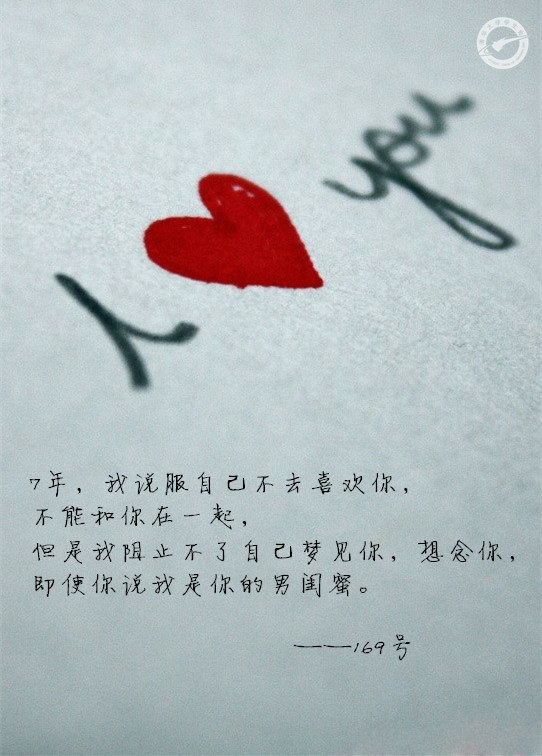 I you
7年，我说服自己不去喜欢你，
不能和你在一起，
但是我阻止不了自己梦见你，想念你，
即使你说我是你的男闺蜜。
——169号